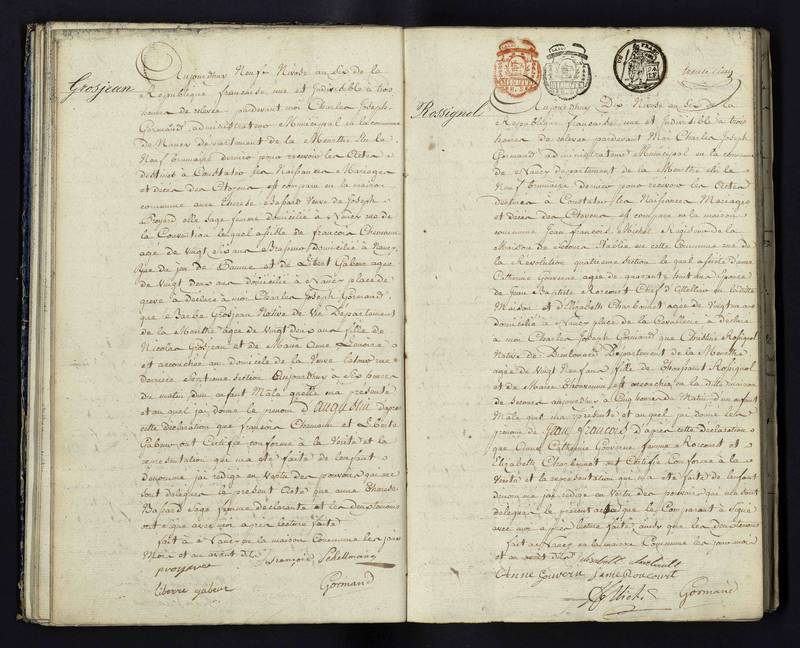 Grosjean
Aujourdhuy Neuf Nivose an Six de la
Republique francaise, une et Indivisible à trois
heures de relevée pardevant moi Charles Joseph
Gormand administrateur Municipal en la commune
de Nancy departement de la Meurthe Elu le
Neuf brumaire dernier pour recevoir les Actes
destinés à Constater les Naissances Mariages
et décès des Citoyens est comparu en la maison
commune anne therese Bapard Veuve de Joseph
sage femme domiciliée à Nancy rue de
la Convention lequel assistée de françois
agé de Vingt Six ans Brasseur domicilié à Nancy
Rue du et de Libert Gabeur agée
de Vingt deux ans domiciliée à Nancy place de
greve a déclaré à moi Charles Joseph Gormand
que Barbe Grosjean Native de Vic Département
de la Meurthe agée de Vingt deux ans fille de
Nicolas Grosjean et de Marie Anne
est accouchée au domicile de la Veuve rue
derriere Septieme section Aujourdhuy à Six heures
du matin d'un enfant Mâle quelle ma presenté
et auquel jai donné le prenom d'augustin dapres
cette déclaration que françois et
Gabeur ont Certifié conforme à la Verité et la
representation qui ma été faite de lenfant
denommé jai redigé en Vertu des pouvoirs qui me
sont delegués le present Acte que anne therese
Bapard Sage femme déclarante et les deux temoins
ont signé avec moi apres lecture faite
fait à Nancy en la maison Commune les jour
Mois et an avant dit François Schellmang
Gormand
Rossignol
Aujourdhuy Dix Nivose an Six de la
Republique française une et Indivisible à trois
heures de relevée pardevant Moi Charles Joseph
Gormand administrateur Municipal en la commune
de Nancy département de la Meurthe élu le
Neuf brumaire Dernier pour recevoir les Actes
destinés à Constater les Naissances Mariages
et Décès des Citoyens est comparu en la maison
commune Jean françois Michel Regisseur de la
Maison de Secours établie en cette Commune rue de
la Révolution quatrieme section lequel assisté danne
Catherine Gouverne agée de quarante huit ans Epouse
de Jean Baptiste Rocourt Chef d'attellier en laditte
Maison et d'Elizabeth Charbonnet agée de Vingt ans
domiciliée à Nancy place de la Cavallerie a déclaré
à moi Charles Joseph Gormand que Christine Rossignol
Native de Dieulouard Departement de la Meurthe
agée de Vingt Neuf ans fille de françois Rossignol
et de Marie Thouvenin est accouchée en la ditte maison
de Secours aujourdhuy à Cinq heures du Matin d'un enfant
Mâle quil ma représenté et auquel jai donné les
prenoms de Jean françois d'apres cette Déclaration
que Anne Catherine Gouverne femme Rocourt et
Elizabeth Charbonnet ont Certifié Conforme à la
Verité et la representation qui ma été faite de lenfant
denommé jai redigé en Vertu des pouvoirs qui me sont
delegués le présent acte que le Comparant a signé
avec moi apres lecture faite ainsy que les deux temoins
fait à Nancy en la maison Commune les jour mois
et an avant dit
Anne Guvern fame Roucourt
Gormand